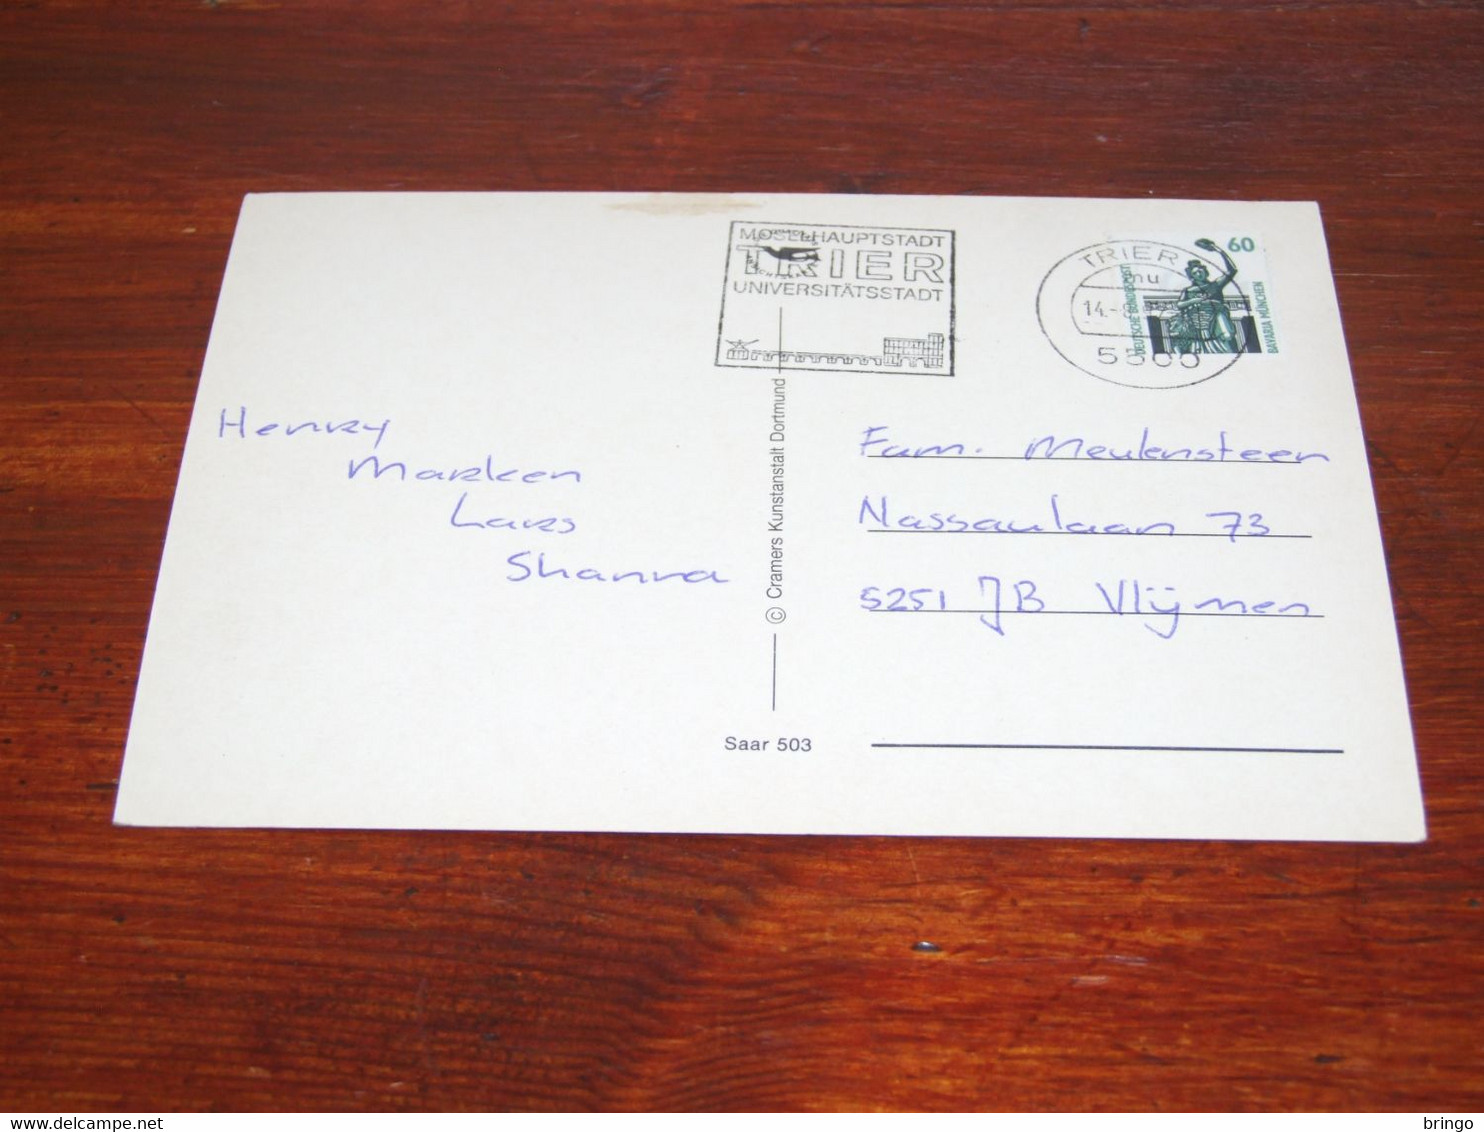 MOSELHAUPTSTADT
TRIER
UNIVERSITÄTSSTADT
TRIER
mu
14.-8
60
DEUTSCHE BUNDESPOST
BAVARIA MÜNCHEN
Henry
Marken
Lars
Shanna
© Cramers Kunstanstalt Dortmund
Saar 503
Fam. Meulensteen
Nassaulaan 73
5251 JB Vlijmen
delcampe.net
bringo